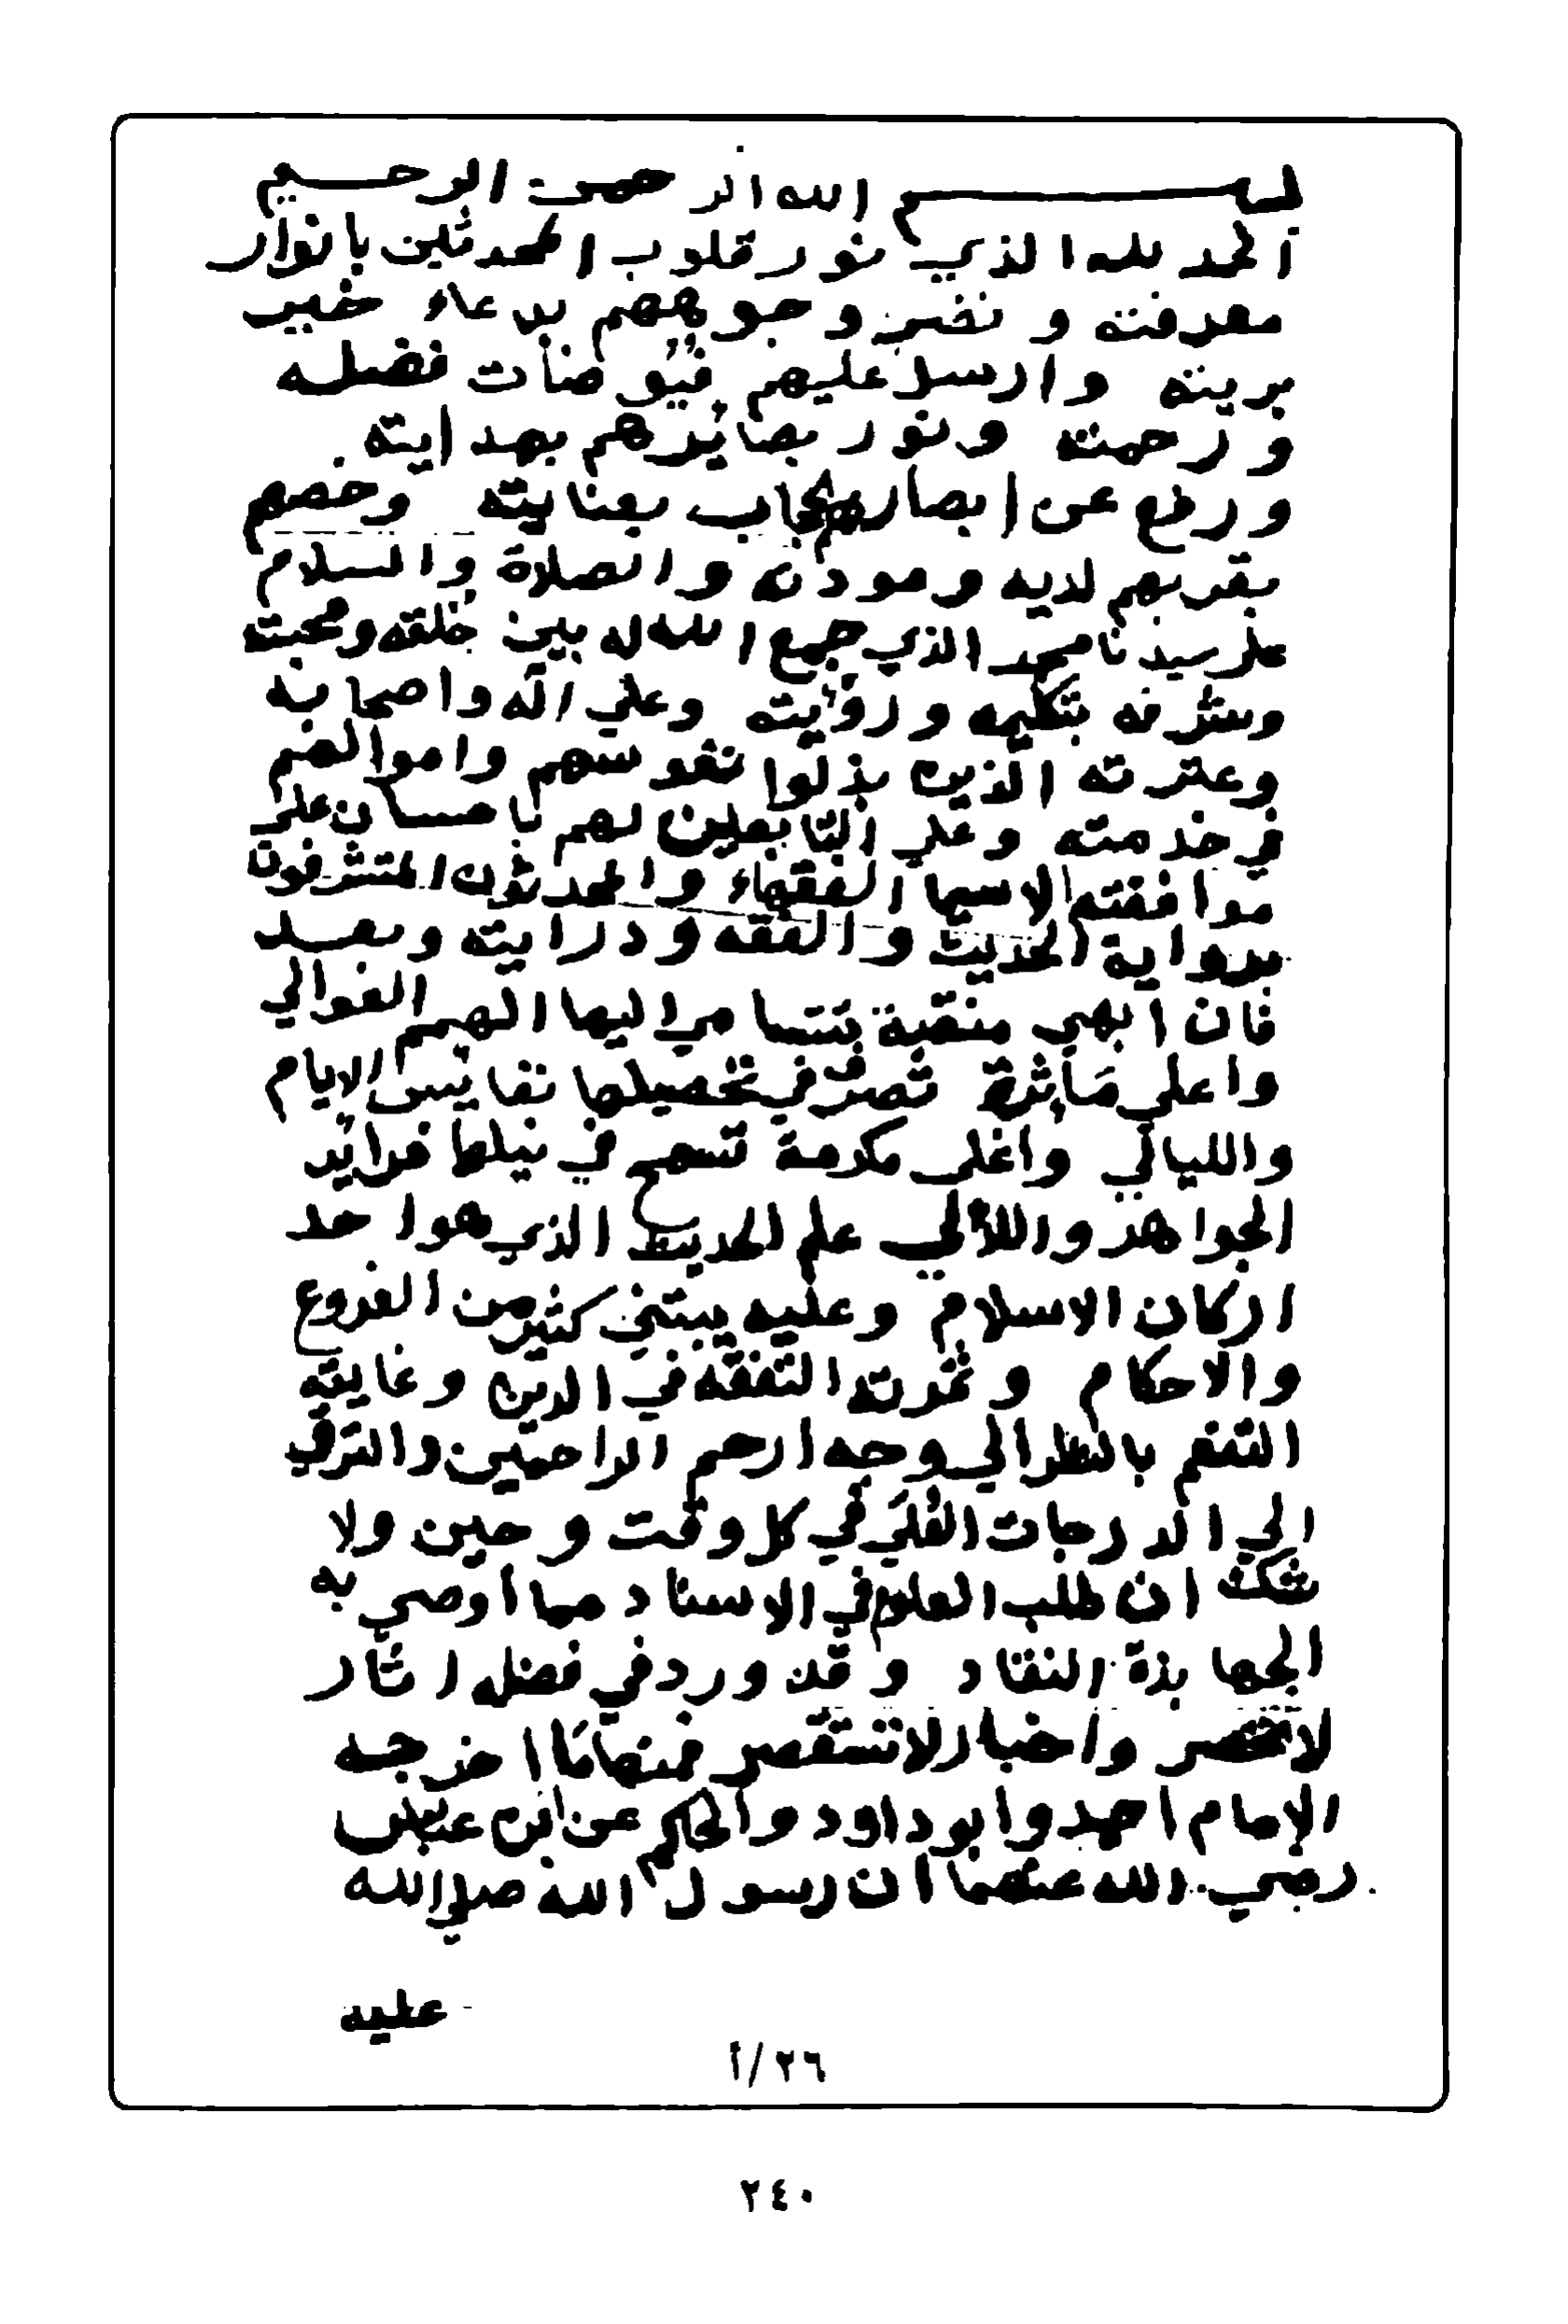 بسم الله الرحمن الرحيم
الحمد لله الذي نور قلوب المحدثين بانوار
معرفته و نضر وجوههم بدعاء خير
بريته وارسل عليهم فيوضات فضله
ورحمته ونور بصائرهم بهدايته
ورفع عن ابصارهم الحجاب بعنايته وخصهم
بقربهم لديه ومودته والصلاة والسلام
على سيدنا محمد الذي جمع الله له بين خلقه ومحبته
وشرفه بتكليمه ورؤيته وعلي اله واصحابه
وعترته الذين بذلوا نفوسهم واموالهم
في خدمته وعلي التابعين لهم باحسان على
موافقتهم لاسيما الفقهاء والمحدثون المتشرفون
برواية الحديث والفقه ودرايته وبعد
فان ابهى منقبة تتسامى اليها الهمم الغوالي
واعلى مأثرة تصرف في تحصيلها نفايس الايام
والليالي واغلى مكرمة تسمح في نيلها فرائد
الجواهر واللآلي علم الحديث الذي هو احد
اركان الاسلام وعليه يبتني كثير من الفروع
والاحكام وثمرته التفقه في الدين وغايته
التنعم بالنظر الي وجه ارحم الراحمين والترقي
الي الدرجات العلي في كل وقت وحين ولا
شك ان طلب العلو في الاسناد مما أوصي به
الجهابذة النقاد وقد ورد في فضله اثار
لا تحصر واخبار لا تستقصر فمنها ما اخرجه
الامام احمد وابو داود والحاكم عن ابن عباس
رضي الله عنهما ان رسول الله صلي الله
عليه
٢٦/أ
٢٤٠